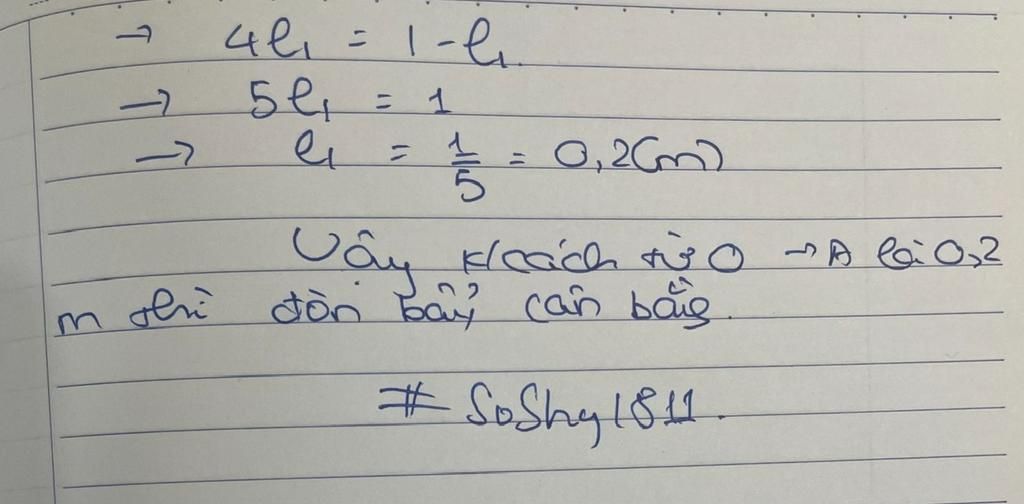 → 4l₁ = 1 - l₁
→ 5l₁ = 1
→ l₁ = 1/5 = 0,2(m)
Vậy k/cách từ O → A là 0,2
m thì đòn bẩy cân bằng.
# SoShy1811.